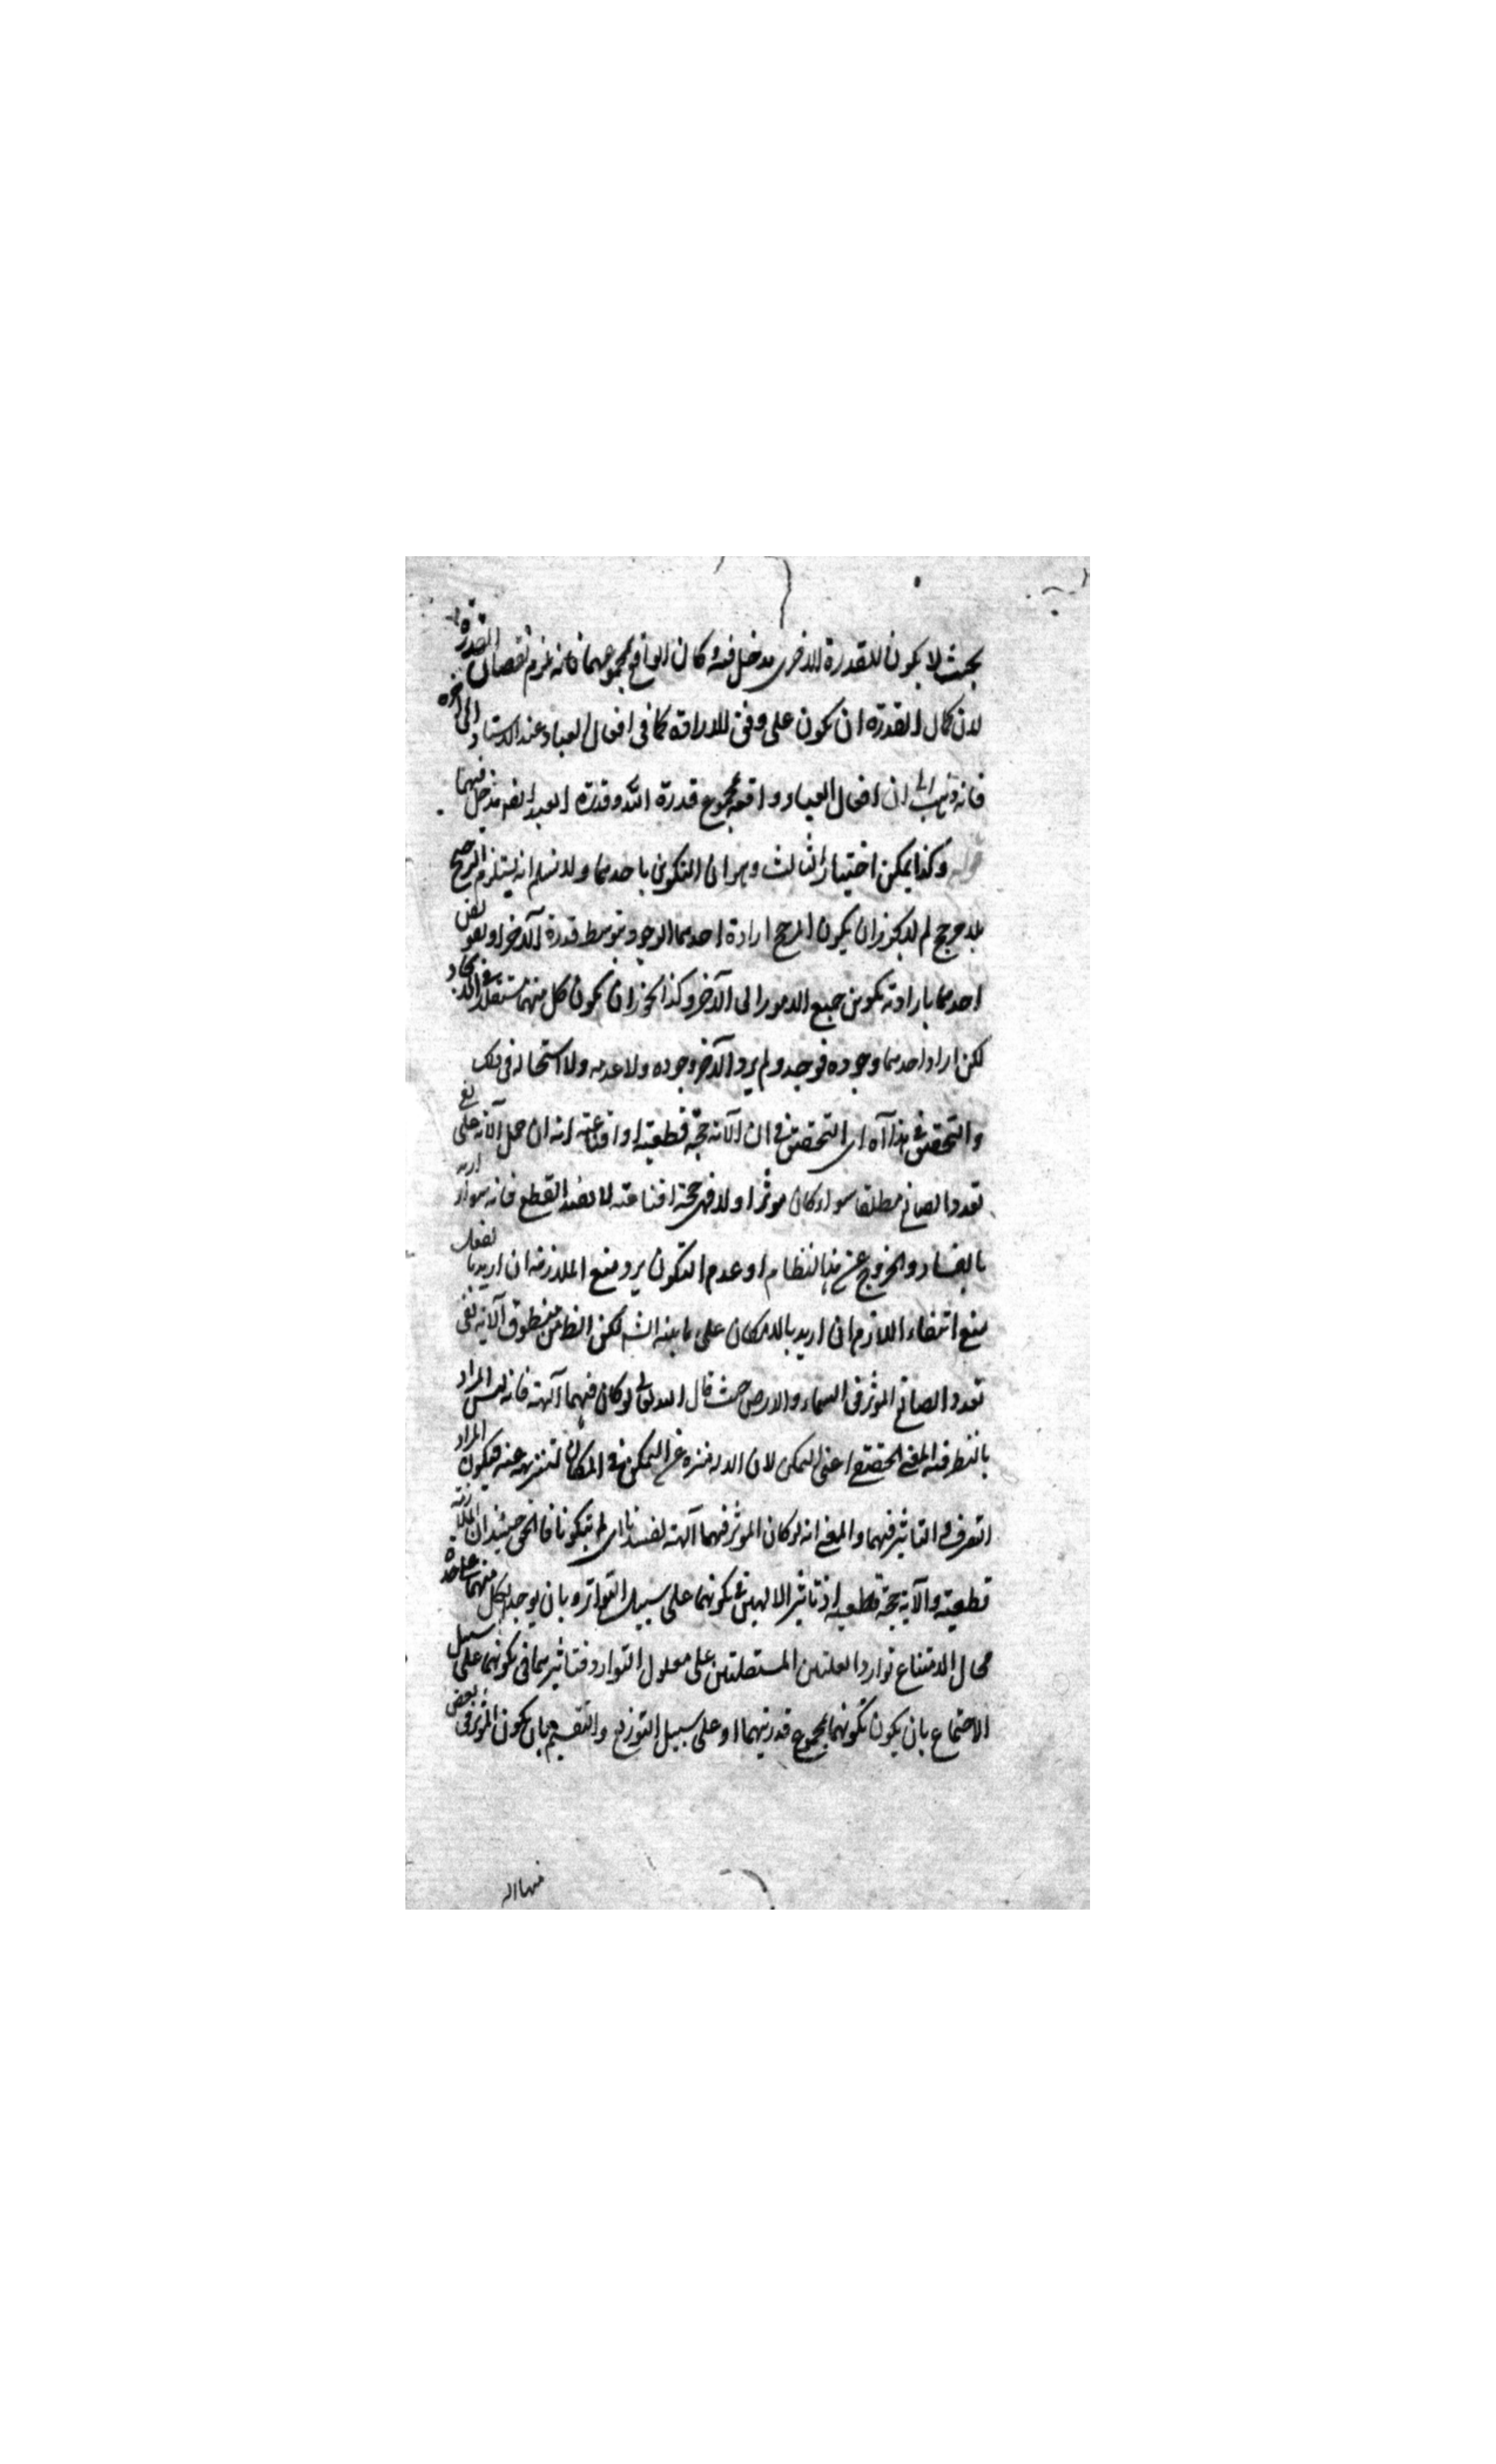 بحيث لا يكون للقدرة الاخرى مدخل فيه وكان الواقع بمجموعهما فانه يلزم نقصان القدرة
لان كمال القدرة ان يكون على وفق الارادة كما في افعال العباد عند الاستاد
فانه ذهب الى ان افعال العباد واقعة بمجموع قدرة الله وقدرة العبد فيهما
وكذا يمكن اختيار الثالث وهو ان التكون باحدهما ولا نسلم انه يستلزم الترجيح
بلا مرجح لم لا يجوز ان يكون المرجح ارادة احدهما الوجود بتوسط قدرة الآخر او يفوض
احدهما بارادته تكوين جميع الامور الى الآخر وكذا يجوز ان يكون كل منهما مستقلا في الايجاد
لكن اراد احدهما وجوده فوجد ولم يرد الآخر وجوده ولا عدمه ولا استحالة في ذلك
والتحقيق في هذا آه اى التحقيق في ان الآية حجة قطعية او اقناعية انه ان حمل الآية على نفى
تعدد الصانع مطلقا سواء كان مؤثرا اولا فهى حجة اقناعية لا تفيد القطع فانه سواء اريد
بالفساد والخروج عن هذا النظام او عدم التكون يرد منع الملازمة ان اريد بالفعل
منع انتفاء اللازم ان اريد بالامكان على ما بينه الش لكن الظ من منطوق الآية نفى
تعدد الصانع المؤثر في السماء والارض حيث قال الله تعالى لو كان فيهما آلهة فانه ليس المراد
المعنى الحقيقى اعنى التمكن لان الاله منزه عن التمكن في المكان لتنزهه عنه فيكون المراد
التصرف و التاثير فيهما والمعنى انه لو كان المؤثر فيهما آلهة لفسدتا اى لم يتكونا فالحق حينئذ ان الملازمة
قطعية والآية حجة قطعية اذ تاثير الالهين في تكونهما على سبيل التوارد بان يوجد لكل منهما
محال لامتناع توارد العلتين المستقلتين على معلول التوارد فتاثيرهما في تكونهما على سبيل
الاجتماع بان يكون تكونهما بمجموع قدرتيهما او على سبيل التوزيع والتقسيم بان يكون المؤثر في بعض
منهما اله